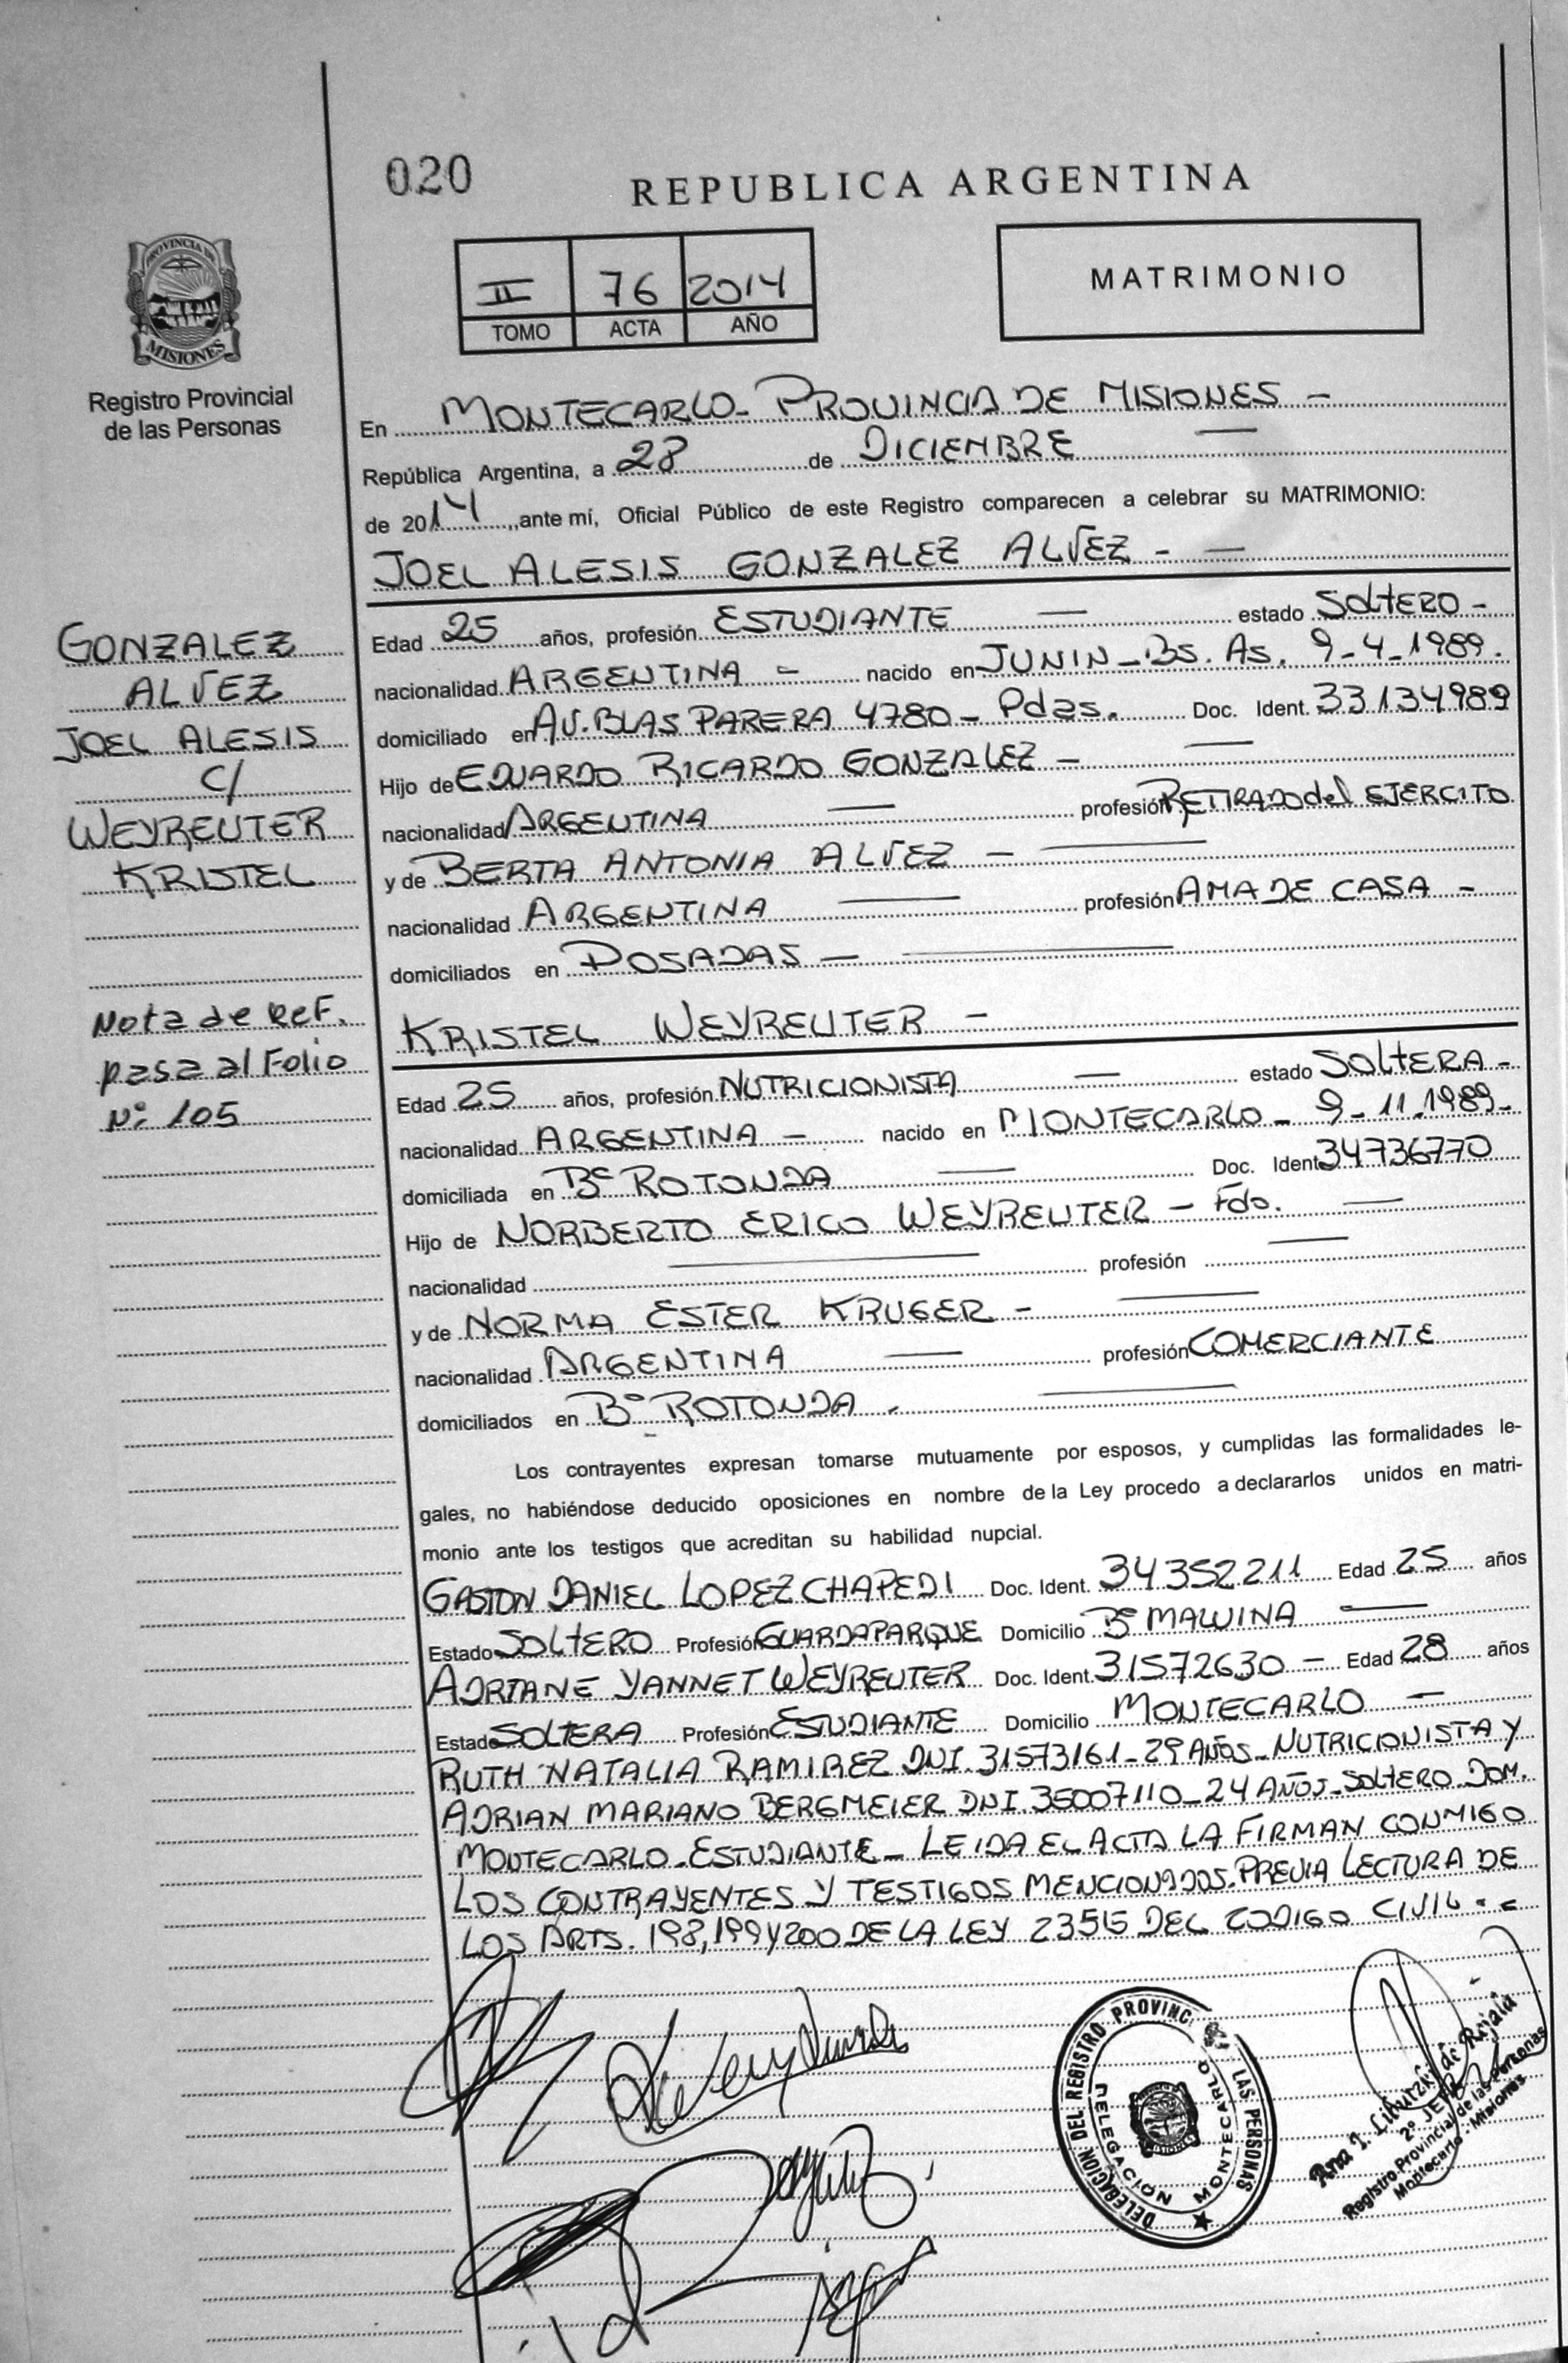 020
REPUBLICA ARGENTINA
PROVINCIA DE
MISIONES
Registro Provincial
de las Personas
II 76 2014
TOMO ACTA AÑO
MATRIMONIO
En MONTECARLO - PROVINCIA DE MISIONES -
República Argentina, a 28 de DICIEMBRE
de 2014, ante mí, Oficial Público de este Registro comparecen a celebrar su MATRIMONIO:
JOEL ALESIS GONZALEZ ALVEZ - -
GONZALEZ
ALVEZ
JOEL ALESIS
C/
WEYREUTER
KRISTEL
Nota de REF.
pasa al Folio
Nº 105
Edad 25 años, profesión ESTUDIANTE estado SOLTERO -
nacionalidad ARGENTINA - nacido en JUNIN - Bs. As. 9-4-1989.
domiciliado en AV. BLAS PARERA 4780 - Pdas. Doc. Ident. 33134989
Hijo de EDUARDO RICARDO GONZALEZ -
nacionalidad ARGENTINA profesión RETIRADO del EJERCITO
y de BERTA ANTONIA ALVEZ -
nacionalidad ARGENTINA profesión AMA DE CASA -
domiciliados en POSADAS -
KRISTEL WEYREUTER -
Edad 25 años, profesión NUTRICIONISTA estado SOLTERA -
nacionalidad ARGENTINA - nacido en MONTECARLO - 9-11-1989-
domiciliada en Bº ROTONDA Doc. Ident 34736770
Hijo de NORBERTO ERICO WEYREUTER - Fdo.
nacionalidad profesión
y de NORMA ESTER KRUGER -
nacionalidad ARGENTINA profesión COMERCIANTE
domiciliados en Bº ROTONDA.
Los contrayentes expresan tomarse mutuamente por esposos, y cumplidas las formalidades le-
gales, no habiéndose deducido oposiciones en nombre de la Ley procedo a declararlos unidos en matri-
monio ante los testigos que acreditan su habilidad nupcial.
GASTON DANIEL LOPEZ CHAPEDI Doc. Ident. 34352211 Edad 25 años
Estado SOLTERO Profesión GUARDAPARQUE Domicilio Bº MALVINA
ADRIANE YANNET WEYREUTER Doc. Ident. 31572630 - Edad 28 años
Estado SOLTERA Profesión ESTUDIANTE Domicilio MONTECARLO -
RUTH NATALIA RAMIREZ DNI. 31573161-29 AÑOS-NUTRICIONISTA Y
ADRIAN MARIANO BERGMEIER DNI. 35007110-24 AÑOS-SOLTERO DOM.
MONTECARLO-ESTUDIANTE- LEIDA EL ACTA LA FIRMAN CONMIGO
LOS CONTRAYENTES Y TESTIGOS MENCIONADOS. PREVIA LECTURA DE
LOS ARTS. 198, 199 Y 200 DE LA LEY 23515 DEL CODIGO CIVIL.
DELEGACION DEL REGISTRO PROVINC. LAS PERSONAS
DELEGACION MONTECARLO
2º JEFE
Registro Provincial de las Personas
Montecarlo - Misiones